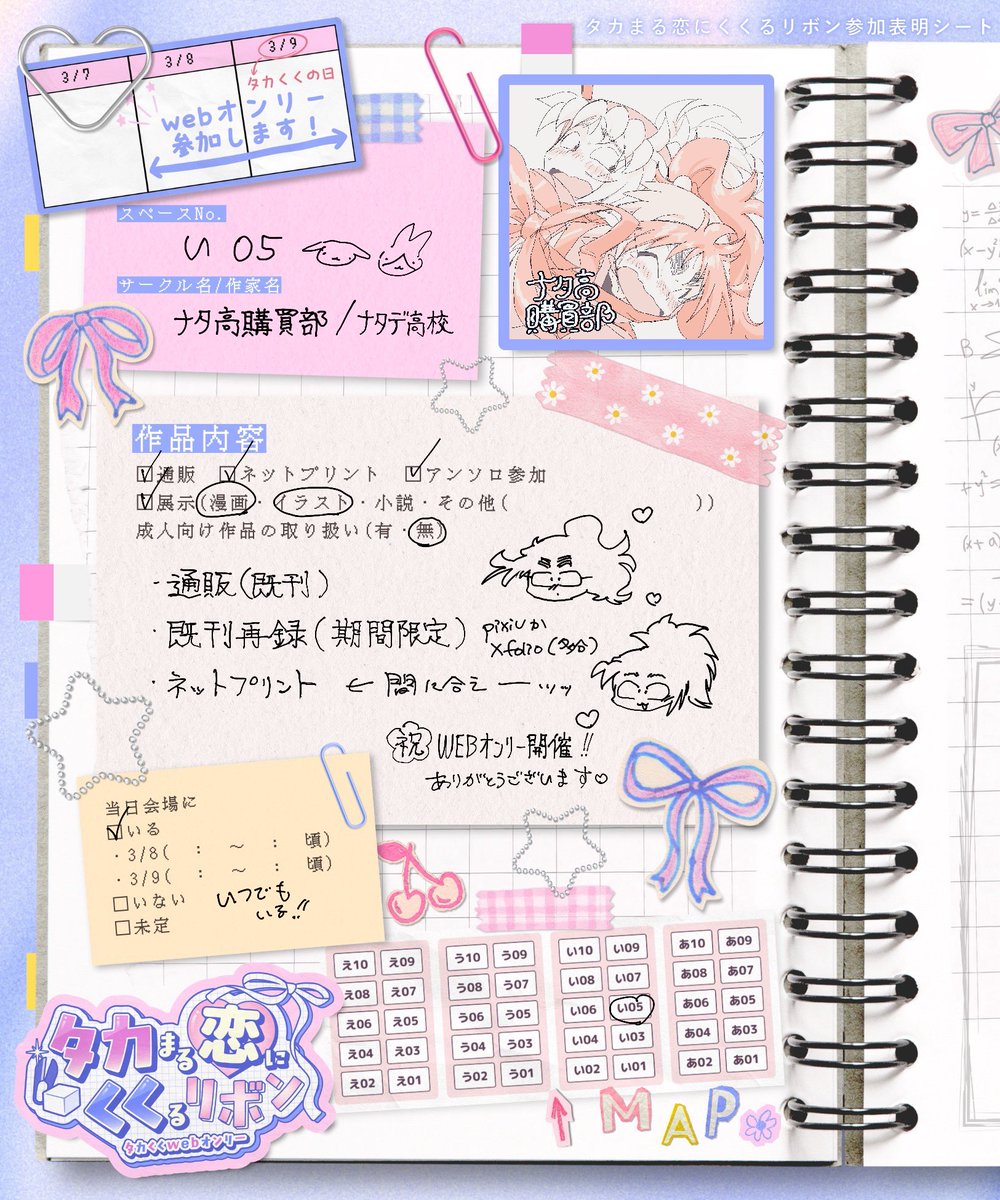 タカまる恋にくくるリボン参加表明シート
3/7
3/8
3/9
タカくくの日
webオンリー
参加します!
スペースNo.
い 05
サークル名/作家名
ナタ高購買部/ナタデ高校
ナタ高
購買部
作品内容
通販 ネットプリント アンソロ参加
展示(漫画・イラスト・小説・その他( ))
成人向け作品の取り扱い(有・無)
・通販(既刊)
・既刊再録(期間限定) pixivか
Xfolio(多分)
・ネットプリント ← 間に合え ーッッ
祝 WEBオンリー開催!!
ありがとうございます♡
当日会場に
いる
・3/8( : ~ : 頃)
・3/9( : ~ : 頃)
いない
未定
いつでも
いる!!
え10 え09 う10 う09 い10 い09 あ10 あ09
え08 え07 う08 う07 い08 い07 あ08 あ07
え06 え05 う06 う05 い06 い05 あ06 あ05
え04 え03 う04 う03 い04 い03 あ04 あ03
え02 え01 う02 う01 い02 い01 あ02 あ01
MAP
タカまる恋に
くくるリボン
タカくくwebオンリー